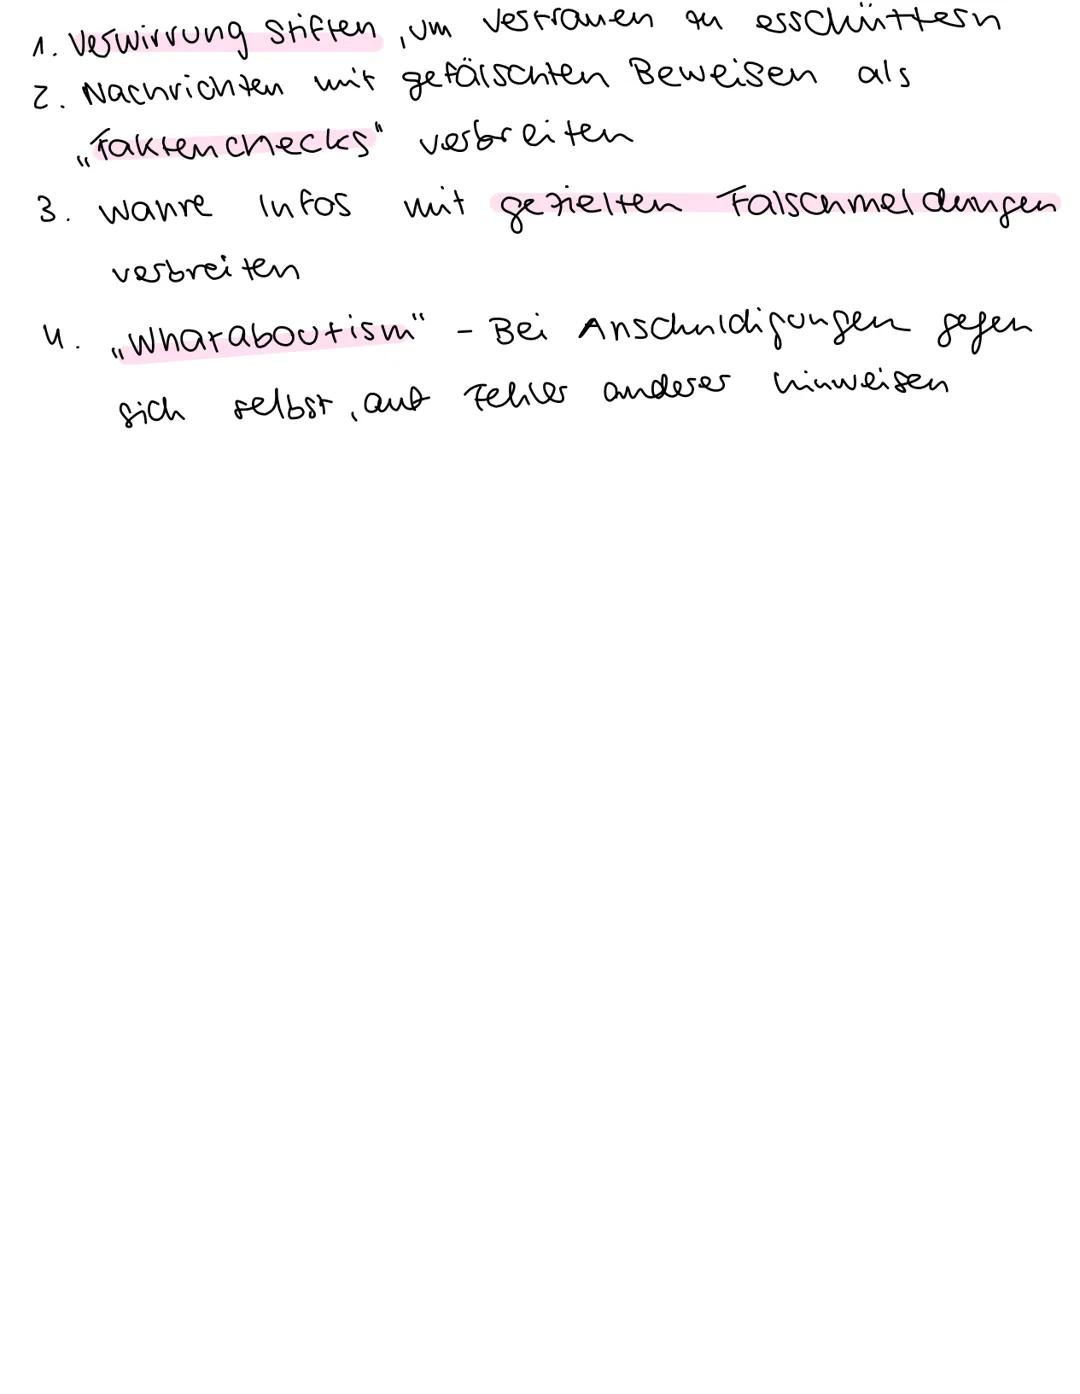 1. Verwirrung stiften, um Vertrauen zu erschüttern
2. Nachrichten mit gefälschten Beweisen als
„Faktenchecks" verbreiten
3. wahre Infos mit gezielten Falschmeldungen
verbreiten
4. „Whataboutism" - Bei Anschuldigungen gegen
sich selbst, auf Fehler anderer hinweisen